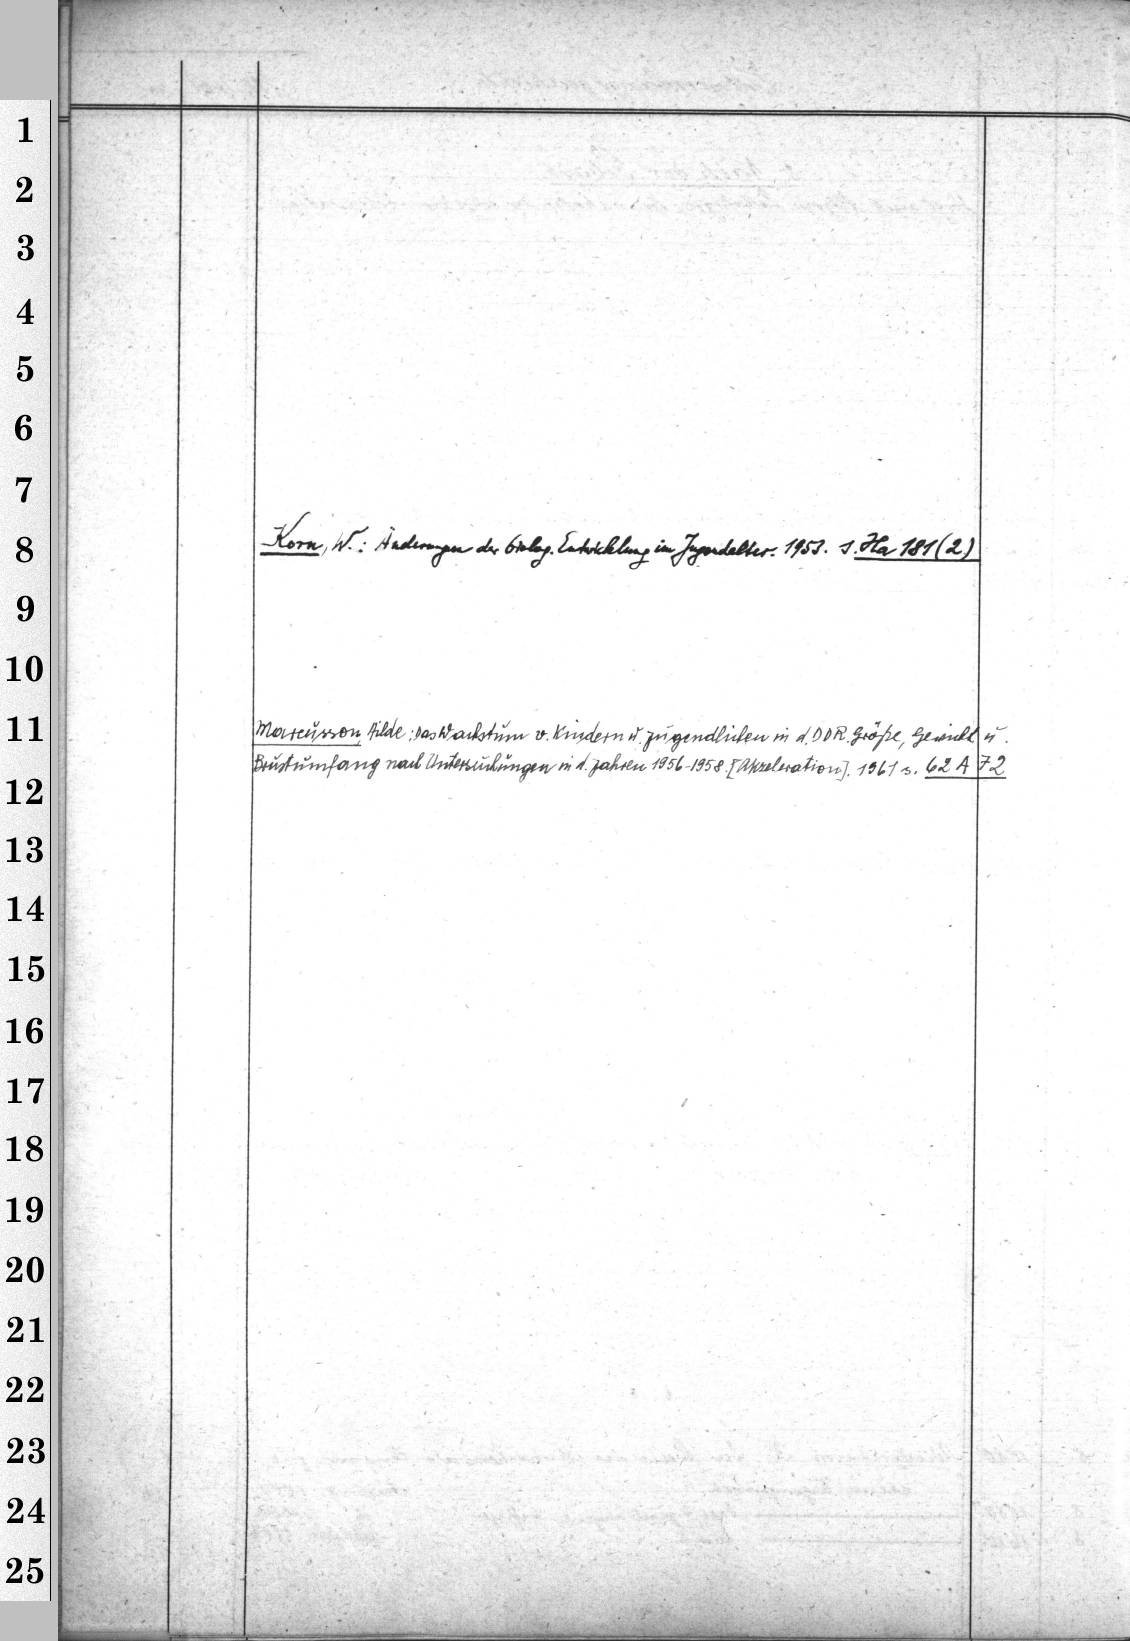 1
2
3
4
5
6
7
Korn, W.: Änderungen der biolog. Entwicklung im Jugendalter. 1953. s. Ha 181 (2)
8
9
10
11
Marcusson, Hilde: Das Wachstum v. Kindern u. Jugendlichen in d. DDR. Größe, Gewicht u.
Brustumfang nach Untersuchungen in d. Jahren 1956-1958. [Akzeleration]. 1961 s. 62 A 72
12
13
14
15
16
17
18
19
20
21
22
23
24
25